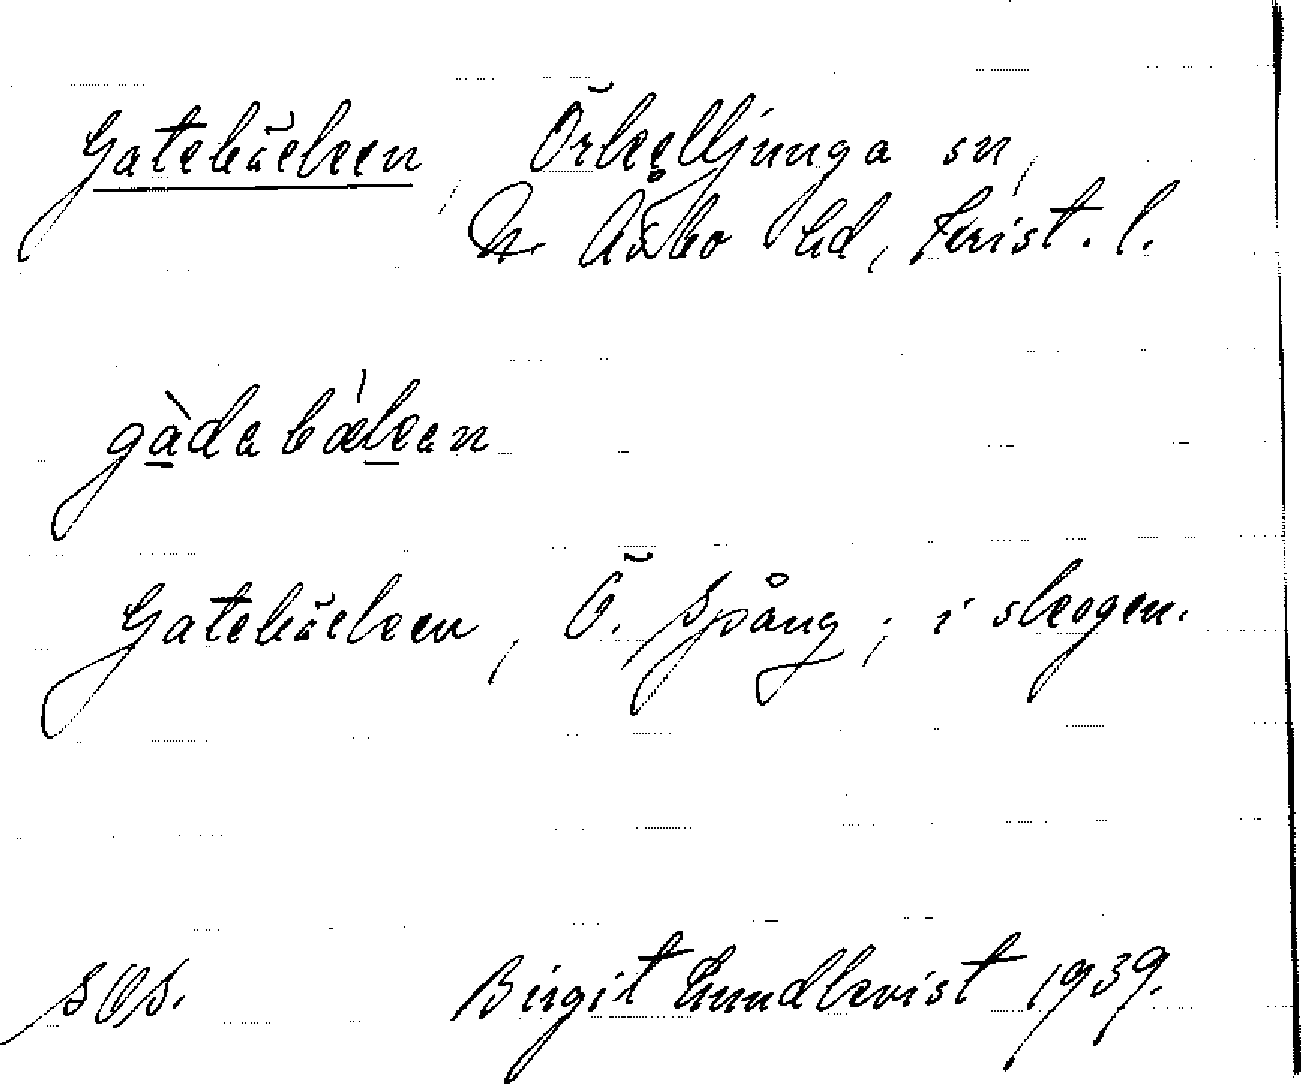 Gatebäcken, Örkelljunga sn,
N. Åsbo hd, Krist. l.
gàdebǽken
Gatebäcken, Ö. Spång; i skogen.
Birgit Lundkvist 1939.